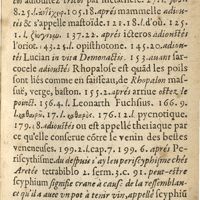 8.25.l. 105.18. aprés mammelle adiou-
stés & s'appelle mastoïde. 121.18.l. d'où. 125.
1.l. ζωογρησι. 137.22. aprés icteros adioustés
l'oriot. 143.25.l. opisthotone. 145.20. adiou-
stés Lucian is vita Demonactis. 153. auant sar-
cocele adioustés Rhopalose est quand les poils
sont liés comme en faisseau, de Rhopalon mas-
sue, verge, baston. 155.2. aprés attiue ostez le
poinct. 156.4.l. Leonarth Fuchsius. 166.9.
l. 167.1.l. 176.12.l. pycnotique.
179.18. adioustés ou est appelé theriaque par
ce qu'elle conserue côtre le venin des bestes
veneneuses. 199.2.l. cap.7. 199.6. aprés Pe-
riscythisme du despuis s'ay leu periscyphisme chés
Aretée tetrabiblo 1. serm.3. c. 91. peut-estre
scyphium signifie crane à cause de la ressemblan-
ce qu'il a auec un pot à tenir vin, appellé scyphiū